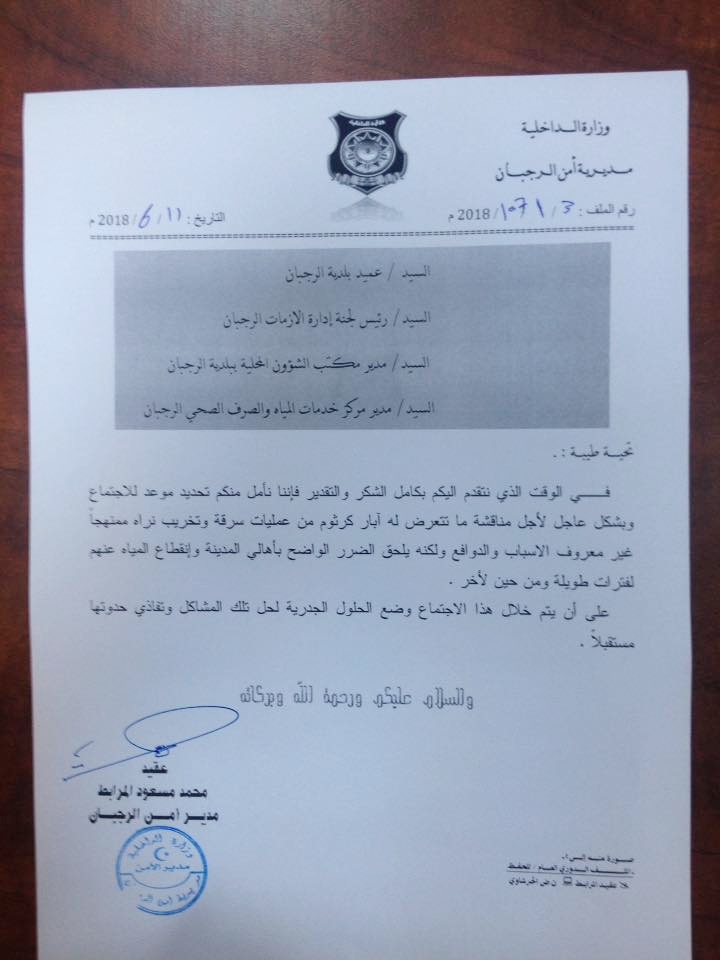 وزارة الداخلية
وزارة الداخلية
مديرية أمن الرجبان
رقم الملف : 3 / 1071 / 2018 م
التاريخ : 11 / 6 / 2018 م
السيد / عميد بلدية الرجبان
السيد / رئيس لجنة إدارة الازمات الرجبان
السيد / مدير مكتب الشؤون المحلية ببلدية الرجبان
السيد / مدير مركز خدمات المياه والصرف الصحي الرجبان
تحية طيبة : .
في الوقت الذي نتقدم اليكم بكامل الشكر والتقدير فإننا نأمل منكم تحديد موعد للاجتماع
وبشكل عاجل لأجل مناقشة ما تتعرض له آبار كرثوم من عمليات سرقة وتخريب نراه ممنهجاً
غير معروف الاسباب والدوافع ولكنه يلحق الضرر الواضح بأهالي المدينة وإنقطاع المياه عنهم
لفترات طويلة ومن حين لأخر .
على أن يتم خلال هذا الاجتماع وضع الحلول الجدرية لحل تلك المشاكل وتفاذي حدوتها
مستقبلاً .
والسلام عليكم ورحمة الله وبركاته
عقيد
محمد مسعود المرابط
مدير أمن الرجبان
وزارة الداخلية
مدير الامن
صورة منه إلى :.
الملف الدوري العام / للحفظ
عقيد المرابط ن ض الحرشاوي